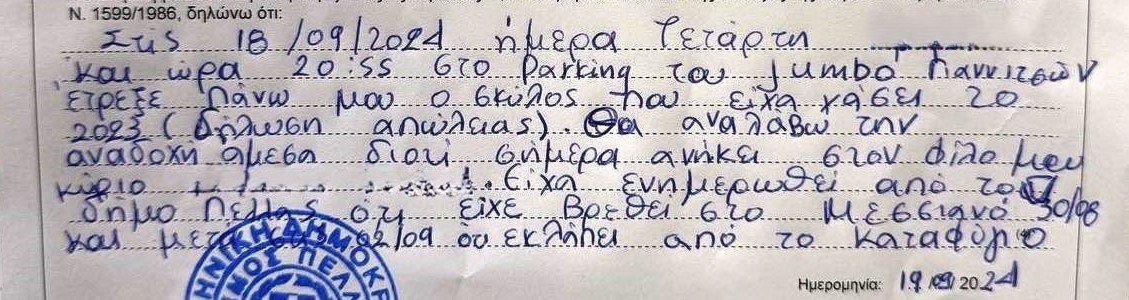 Ν. 1599/1986, δηλώνω ότι:
Στις 18/09/2024 ήμερα Τετάρτη
και ώρα 20:55 στο Parking του Jumbo Γιαννιτσών
έτρεξε πάνω μου ο σκύλος που είχα χάσει 20
2023 (δήλωση απώλειας). Θα αναλάβω την
αναδοχή άμεσα διοτι σήμερα ανήκει στον φίλο μου
κύριο Είχα ενημερωθεί από το
δήμο Πέλλας ότι είχε βρεθεί στο Μεσσιανό 30/08
και μετα 02/09 ότι εκλάπει από το καταφύγιο
ΗΝΙΚΗ ΔΗΜΟΚΡ
ΜΟΣ ΠΕΛΛ
Ημερομηνία: 19/09/2024